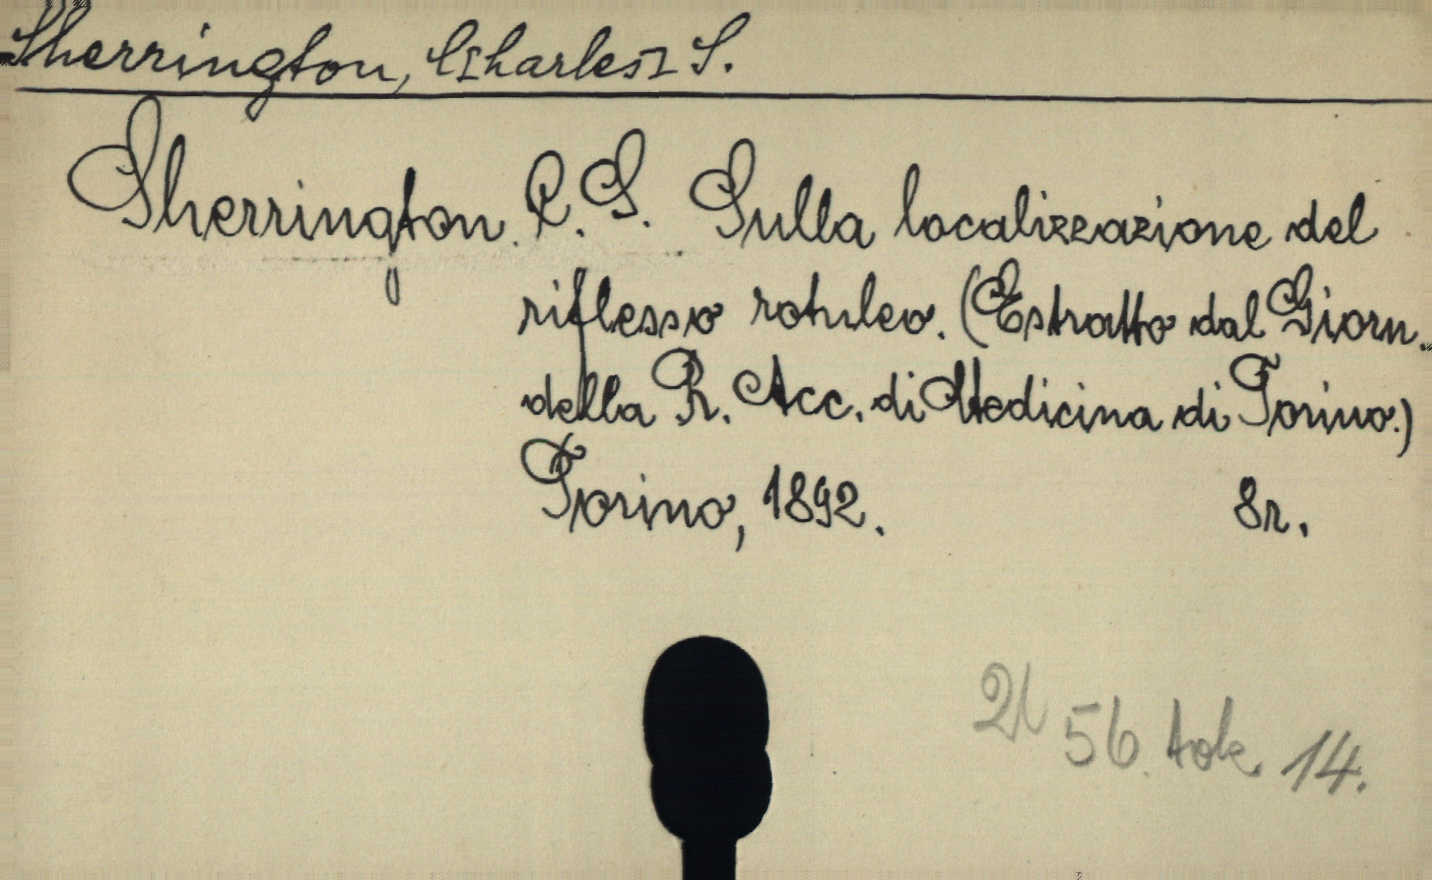 Sherrington, C[harles] S.
Sherrington. C. S. Sulla localizzazione del
riflesso rotuleo. (Estratto dal Giorn.
della R. Acc. di Medicina di Torino.)
Torino, 1892. 8r.
56. tok. 14.